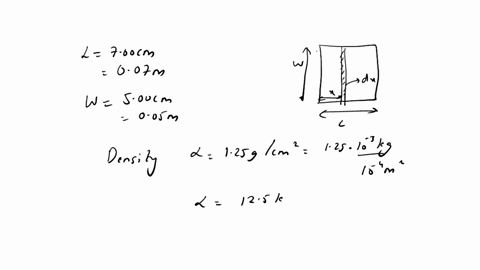 L = 7.00cm
= 0.07m
W = 5.00cm
= 0.05m
W
x
dx
L
Density α = 1.25g/cm² = 1.25 · 10⁻³ kg / 10⁻⁴ m²
α = 12.5 k